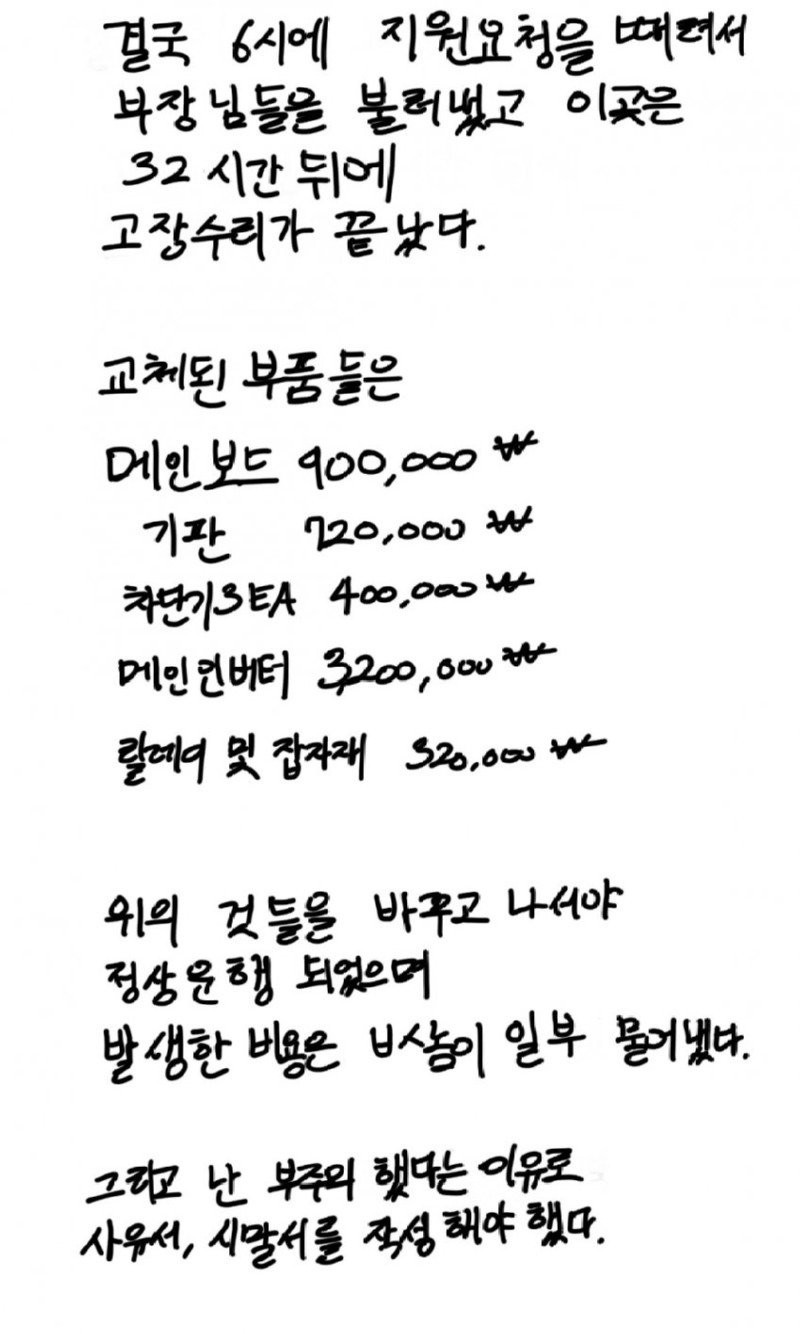 결국 6시에 지원요청을 때려서
부장님들을 불러냈고 이곳은
32시간 뒤에
고장수리가 끝났다.
교체된 부품들은
메인보드 900,000₩
기판 720,000₩
차단기3EA 400,000₩
메인인버터 3,200,000₩
랄레이 및 잡자재 320,000₩
위의 것들을 바꾸고 나서야
정상운행 되었으며
발생한 비용은 ㅂㅅ놈이 일부 물어냈다.
그리고 난 부주의 했다는 이유로
사유서, 시말서를 작성해야 했다.